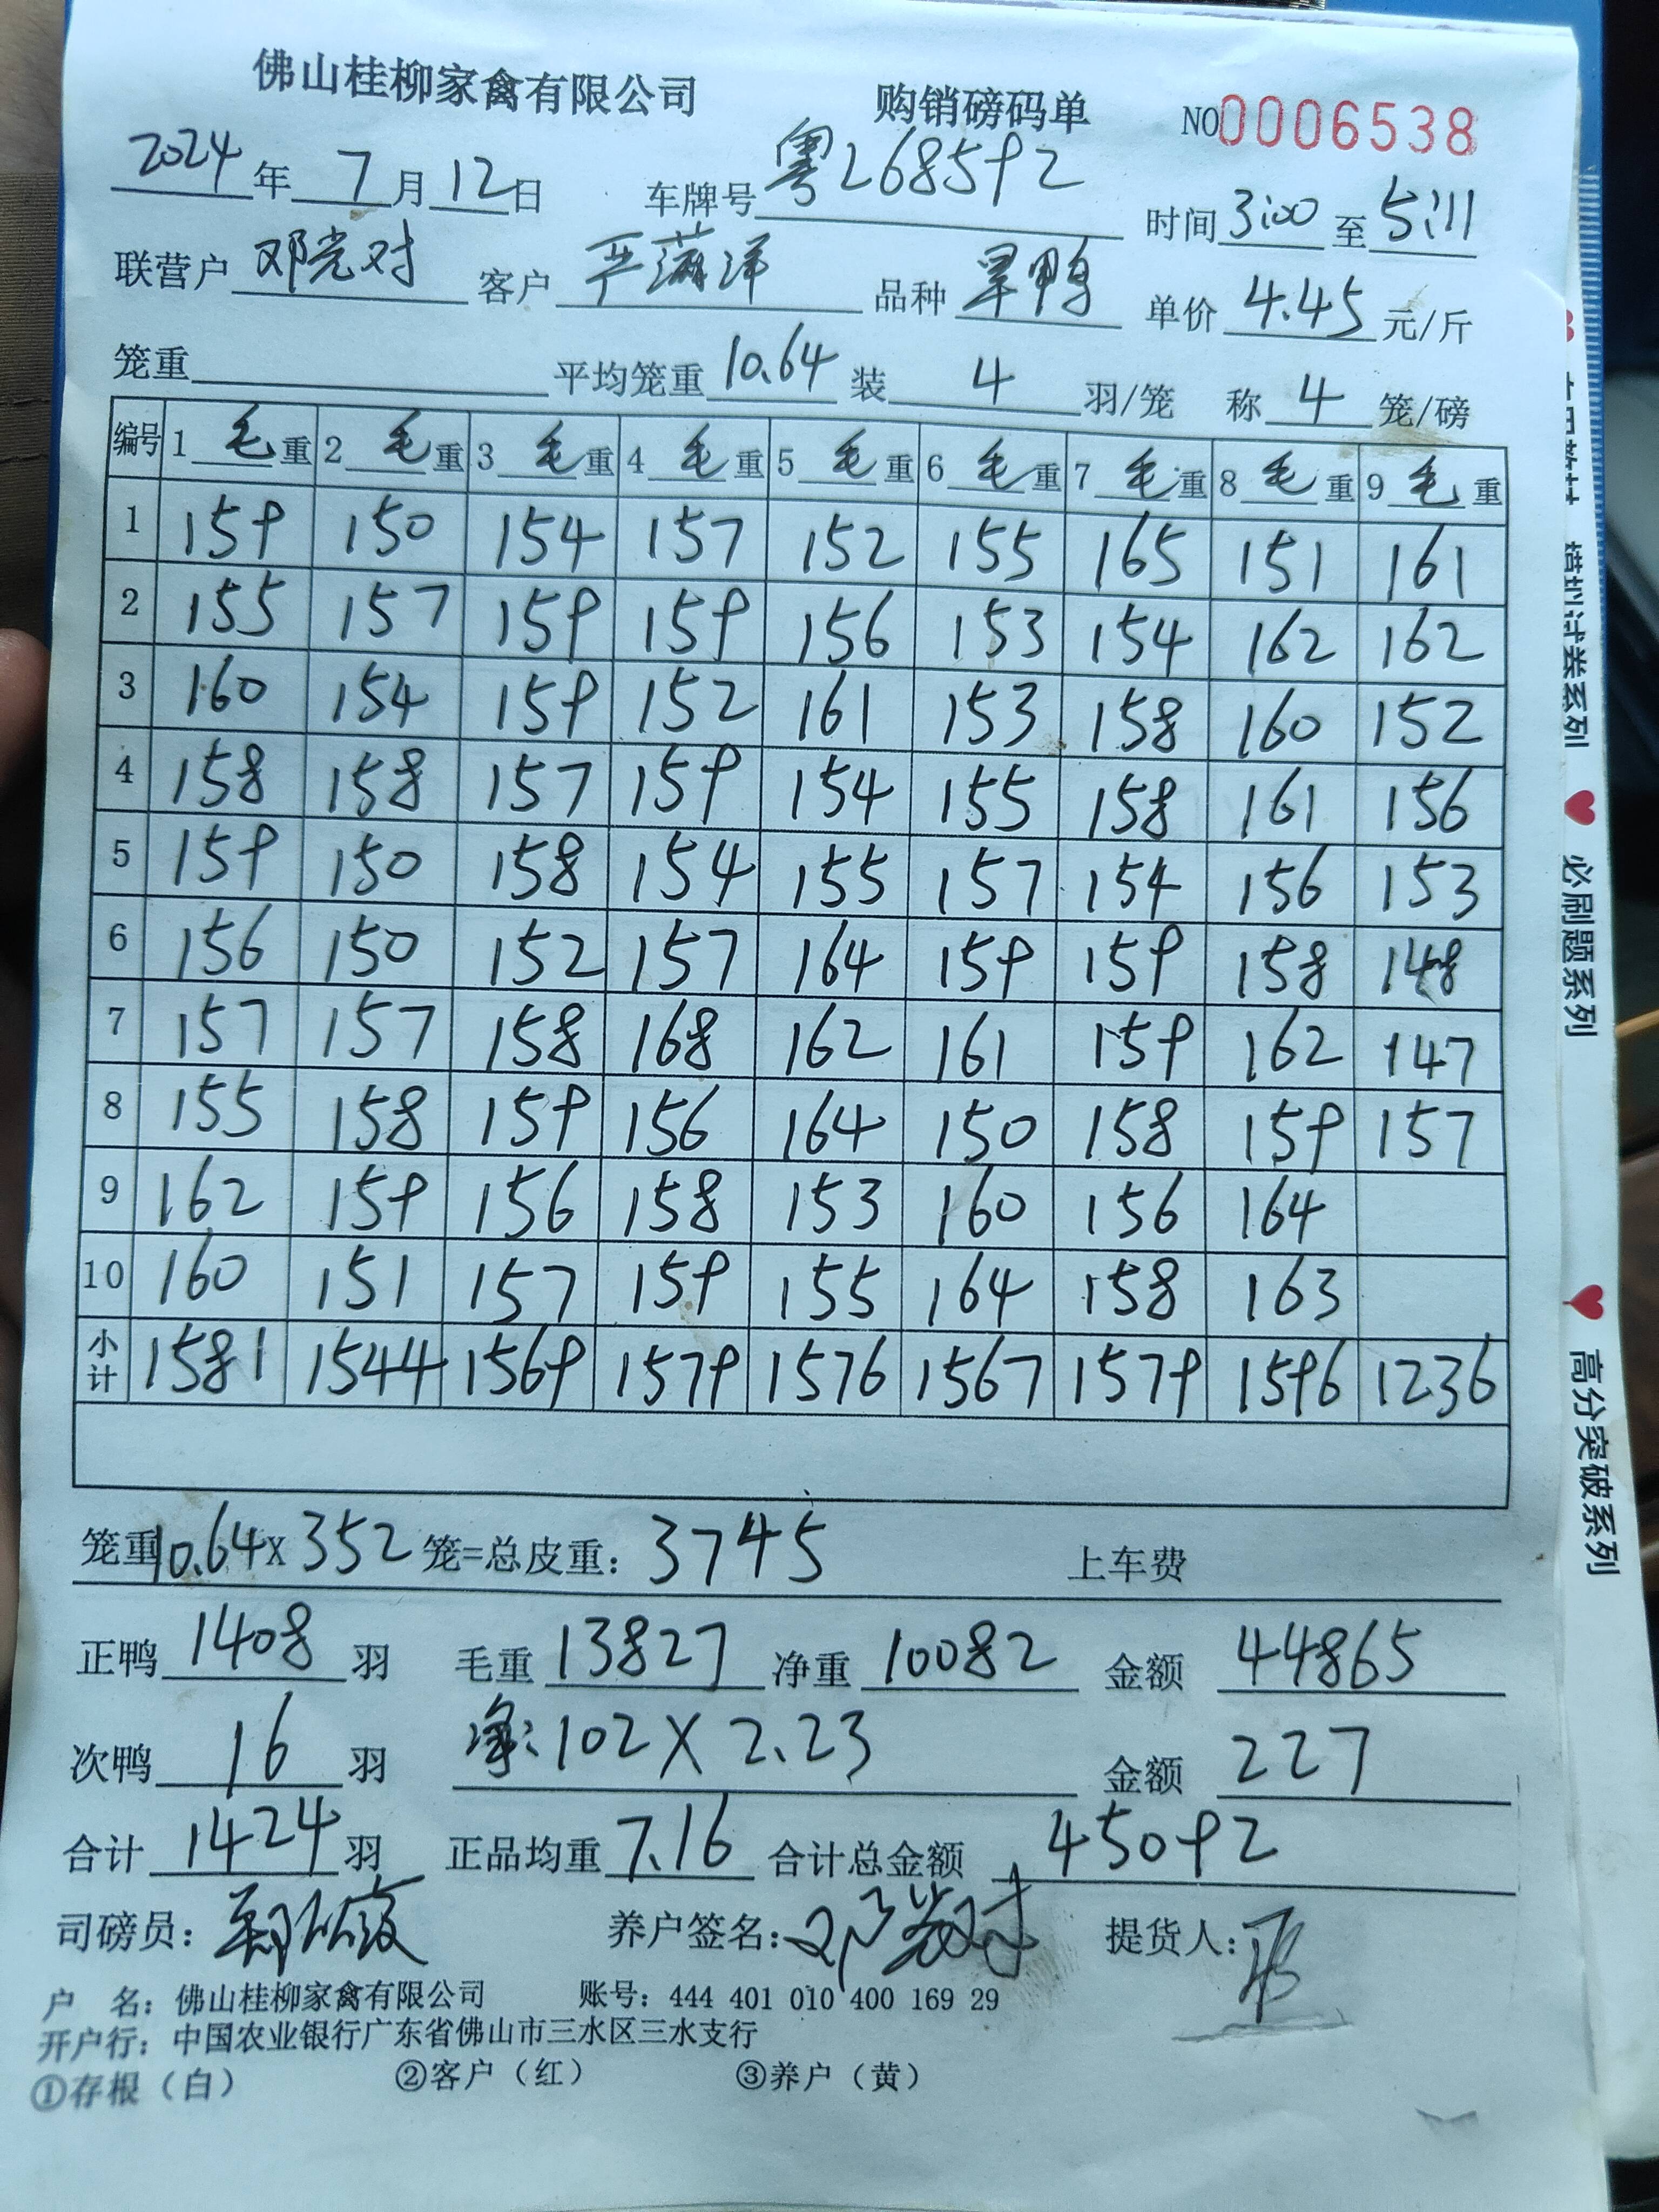 佛山桂柳家禽有限公司 购销磅码单 NO0006538
2024年 7月12日 车牌号 粤268592 时间3:00至5:11
联营户 邓光对 客户 严满洋 品种 旱鸭 单价 4.45 元/斤
笼重 平均笼重 10.64 装 4 羽/笼 称 4 笼/磅
编号 1 毛重 2 毛重 3 毛重 4 毛重 5 毛重 6 毛重 7 毛重 8 毛重 9 毛重
1 159 150 154 157 152 155 165 151 161
2 155 157 159 159 156 153 154 162 162
3 160 154 159 152 161 153 158 160 152
4 158 158 157 159 154 155 158 161 156
5 159 150 158 154 155 157 154 156 153
6 156 150 152 157 164 159 159 158 148
7 157 157 158 168 162 161 159 162 147
8 155 158 159 156 164 150 158 159 157
9 162 159 156 158 153 160 156 164
10 160 151 157 159 155 164 158 163
小计 1581 1544 1569 1579 1576 1567 1579 1596 1236
笼重10.64x352笼=总皮重：3745 上车费
正鸭 1408 羽 毛重 13827 净重 10082 金额 44865
次鸭 16 羽 净：102X2.23 金额 227
合计 1424 羽 正品均重 7.16 合计总金额 45092
司磅员： 养户签名：邓光对 提货人：
户 名：佛山桂柳家禽有限公司 账号：444 401 010 400 169 29
开户行：中国农业银行广东省佛山市三水区三水支行
①存根（白） ②客户（红） ③养户（黄）
必刷题系列
高分突破系列